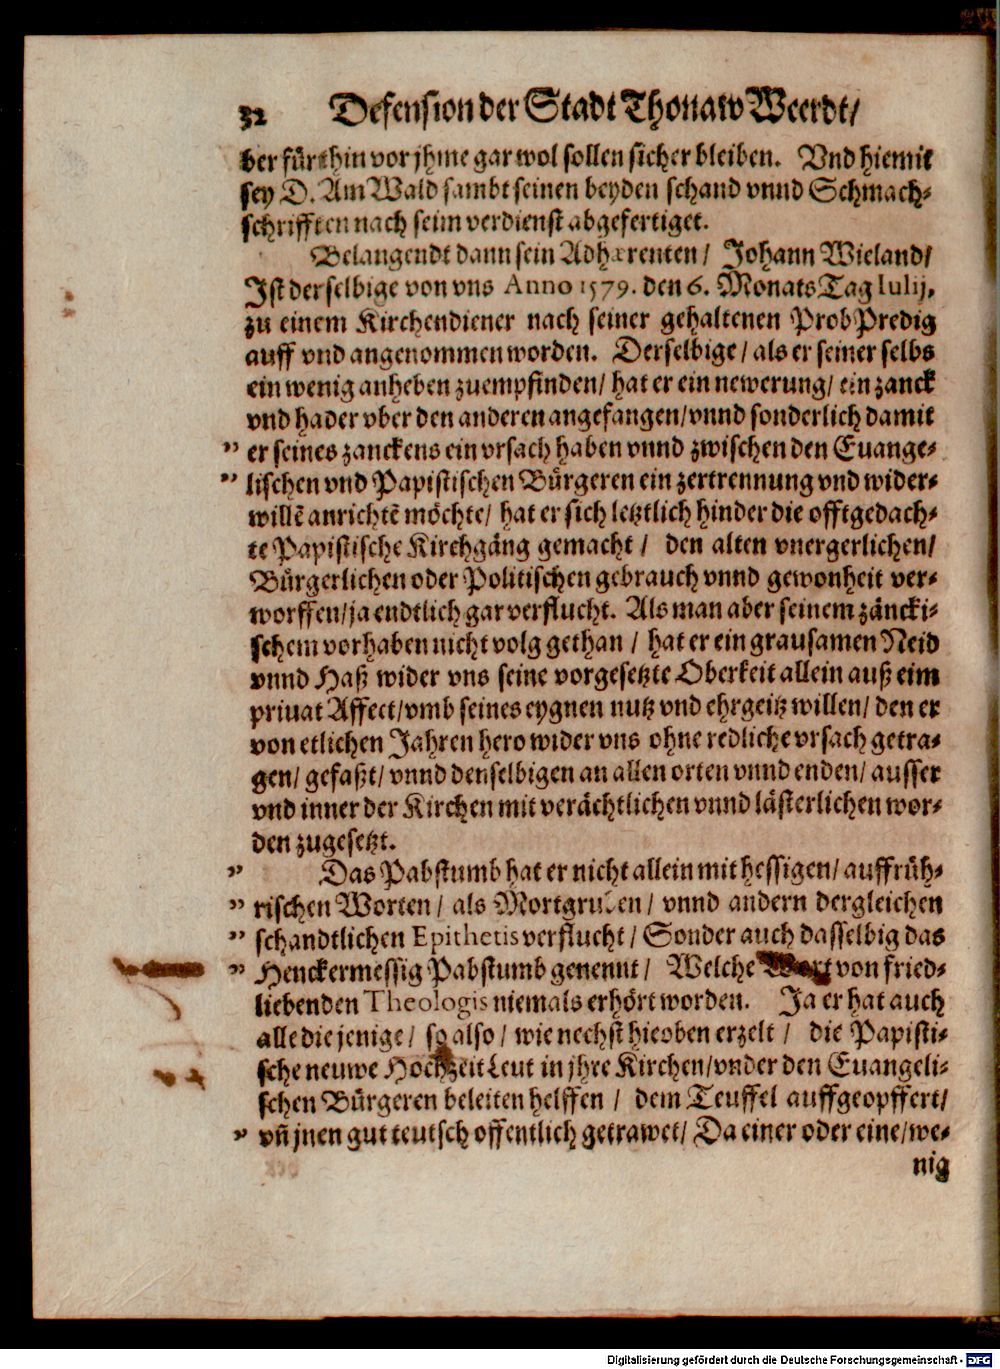 32 Defension der Stadt Thonaw Weerdt/
ber fürthin vor jhme gar wol sollen sicher bleiben. Vnd hiemit
sey D. Am Wald sambt seinen beyden schand vnnd Schmach-
schrifften nach seim verdienst abgefertiget.
Belangendt dann sein Adhærenten/ Johann Wieland/
Ist derselbige von vns Anno 1579. den 6. Monats Tag Iulij,
zu einem Kirchendiener nach seiner gehaltenen Prob Predig
auff vnd angenommen worden. Derselbige/ als er seiner selbs
ein wenig anheben zuempfinden/ hat er ein newerung/ ein zanck
vnd hader vber den anderen angefangen/ vnnd sonderlich damit
" er seines zanckens ein vrsach haben vnnd zwischen den Euange-
" lischen vnd Papistischen Bürgeren ein zertrennung vnd wider-
willē anrichtē möchte/ hat er sich letztlich hinder die offtgedach-
te Papistische Kirchgäng gemacht/ den alten vnergerlichen/
Bürgerlichen oder Politischen gebrauch vnnd gewonheit ver-
worffen/ ja endtlich gar verflucht. Als man aber seinem zäncki-
schem vorhaben nicht volg gethan/ hat er ein grausamen Neid
vnnd Haß wider vns seine vorgesetzte Oberkeit allein auß eim
priuat Affect/ vmb seines eygnen nutz vnd ehrgeitz willen/ den er
von etlichen Jahren hero wider vns ohne redliche vrsach getra-
gen/ gefaßt/ vnnd denselbigen an allen orten vnnd enden/ ausser
vnd inner der Kirchen mit verächtlichen vnnd lästerlichen wor-
den zugesetzt.
" Das Pabstumb hat er nicht allein mit hessigen/ auffrüh-
" rischen Worten/ als Mortgruben/ vnnd andern dergleichen
" schandtlichen Epithetis verflucht/ Sonder auch dasselbig das
" Henckermessig Pabstumb genennt/ Welche Wort von fried-
liebenden Theologis niemals erhört worden. Ja er hat auch
alle die jenige/ so also/ wie nechst hieoben erzelt/ die Papisti-
sche neuwe Hochzeit Leut in jhre Kirchen/ vnder den Euangeli-
schen Bürgeren beleiten helffen/ dem Teuffel auffgeopffert/
" vñ jnen gut teutsch offentlich getrawet/ Da einer oder eine/ we-
nig
Digitalisierung gefördert durch die Deutsche Forschungsgemeinschaft - DFG